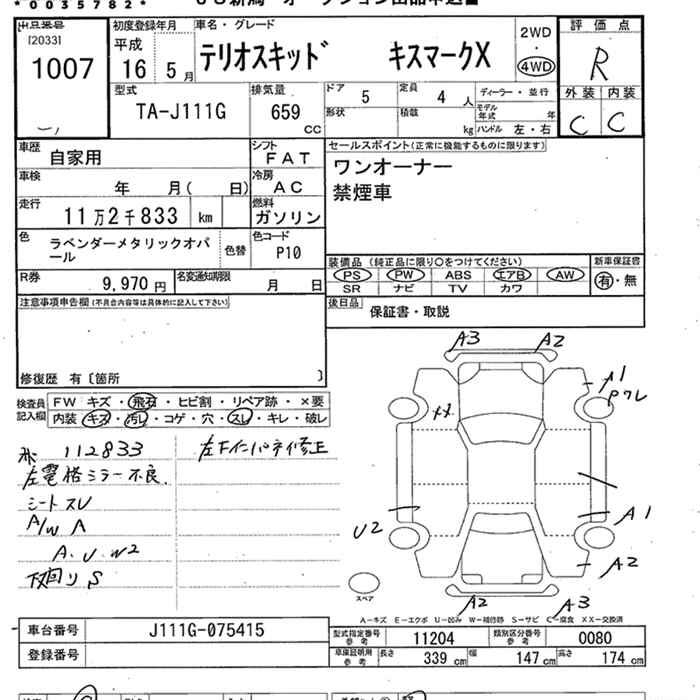 *0035782*
出品番号
[2033]
1007
初度登録年月
平成
16 5 月
車名・グレード
テリオスキッド キスマークX
2WD
・
4WD
評価点
R
外装 内装
C C
型式
TA-J111G
排気量
659
CC
ドア 5
定員 4 人
形状
積載 kg
ディーラー・並行
モデル年式 年
ハンドル 左・右
車歴
自家用
シフト
FAT
車検
年 月( 日)
冷房
AC
走行
11万2千833 km
燃料
ガソリン
色
ラベンダーメタリックオパール
色替
色コード
P10
R券
9,970 円
名変通知期限
月 日
セールスポイント(正常に機能するものに限ります)
ワンオーナー
禁煙車
装備品 (純正品に限り○をつけてください)
PS PW ABS エアB AW
SR ナビ TV カワ
新車保証書
有・無
後日品
保証書・取説
注意事項申告欄(不具合内容等は具体的に記入して下さい)
修復歴 有〔箇所 〕
検査員
記入欄
FW キズ・飛石・ヒビ割・リペア跡・×要
内装・キズ・汚レ・コゲ・穴・スレ・キレ・破レ
112833
左電格ミラー不良
シートスレ
A/W A
A. U. W2
下回りS
修正
A3 A2
A1
U2
A1
A2
A2 A3
スペア
A-キズ E-エクボ U-凹み W-補修跡 S-サビ C-腐食 XX-交換済
車台番号
J111G-075415
登録番号
型式指定番号
参考
11204
類別区分番号
参考
0080
車庫証明用
参考
長さ 339 cm
幅 147 cm
高さ 174 cm